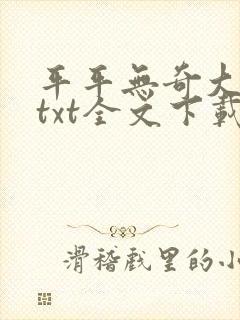 平平無奇大
txt全文下載
滑稽戲里的小